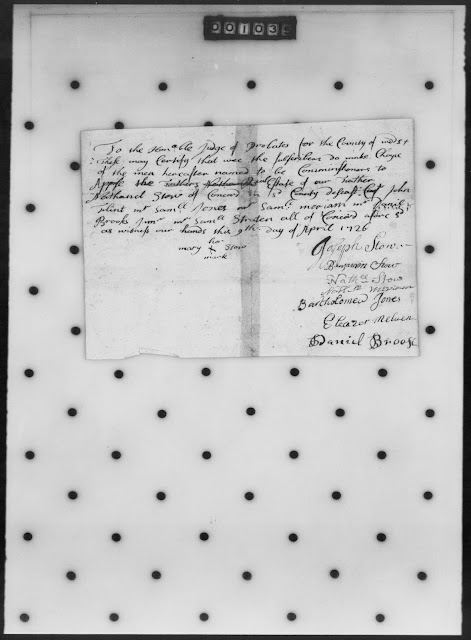 00103
To the Honᵃble Judge of Probates for the County of midsx
These may Certify that wee the subscribers do make Choyse
of the men hereafter named to be Commissioners to
Apprise the Estate of our father
Nathanael Stow of Concord in sd County desesd John
flint mr Samll Jones mr Samll meriam mr
Brooks Junr mr Samll all of Concord afore sd
as witness our hands this 9th day of April 1726
her
mary x Stow
mark
Joseph Stow
Benjamin Stow
Nathll Stow
Nathll Meriam
Bartholomew Jones
Eleazer Melven
Daniel Brook